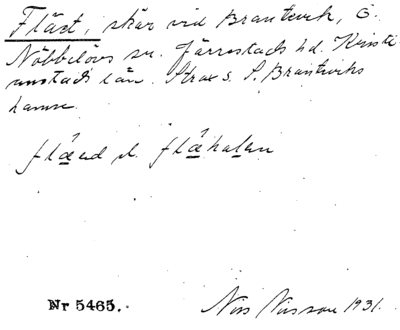 Fläet, skär vid Brantevik, Ö.
Nöbbelövs sn. Järrestads hd. Kristi
anstads län. Strax s. S. Branteviks
hamn.
flæ̀ed l. flæ̀halen
Nr 5465.
Nils Nilsson 1931.